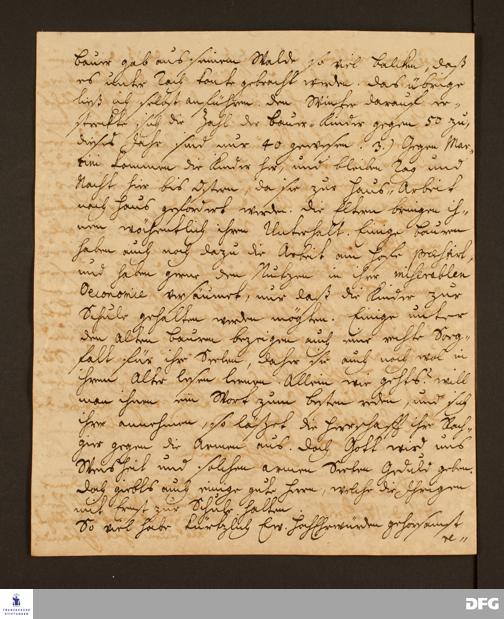 bauer gab aus seinem Walde so viel balcken, daß
es unter Dach konte gebracht werden. das übrige
ließ ich selbst anführen. Den Winter darauf er-
streckte sich die Zahl der bauer-Kinder gegen 50 zu,
dieses Jahr sind nur 40 gewesen. 3) Gegen Mar-
tini kommen die Kinder her, und bleiben Tag und
Nacht hier bis Ostern, da sie zur Haus-Arbeit
nach Haus gefordert werden. die Eltern bringen ih-
nen wöchentlich ihren Unterhalt. Einige bauren
haben auch noch dazu die Arbeit am Hofe praestirt,
und haben gerne den Nutzen in ihrer miserablen
Oeconomie versäumet, nur daß die Kinder zur
Schule gehalten werden mögten. Einige unter
den Alten bauren bezeigen auch eine rechte Sorg-
falt für ihre Seelen, daher sie auch noch wol in
ihrem Alter lesen lernen. Allein wie gehts? will
man ihnen ein Wort zum besten reden, und sich
ihrer annehmen, so läßet die Herrschafft ihre Rach-
gier gegen die Armen aus. Doch Gott wird uns
Weisheit und solchen armen Seelen Gedult geben.
Doch giebts auch einige gute Herren, welche die Ihrigen
mit Ernst zur Schule halten.
So viel habe kürtzlich Ew. Hochehrwürden gehorsamst
re-
FRANCKESCHE STIFTUNGEN
DFG